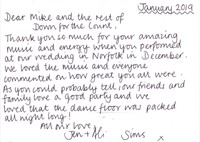 January 2019
Dear Mike and the rest of
Down for the Count.
Thank you so much for your amazing
music and energy when you performed
at our wedding in Norfolk in December.
We loved the music and everyone
commented on how great you all were.
As you could probably tell, our friends and
family love a good party and we
loved that the dance floor was packed
all night long!
All our love,
Jen + Ali Sims x